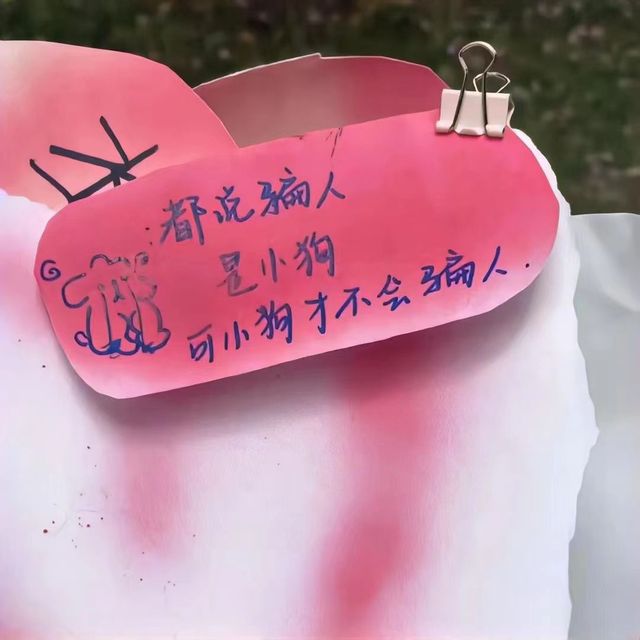 都说骗人
是小狗
可小狗才不会骗人.